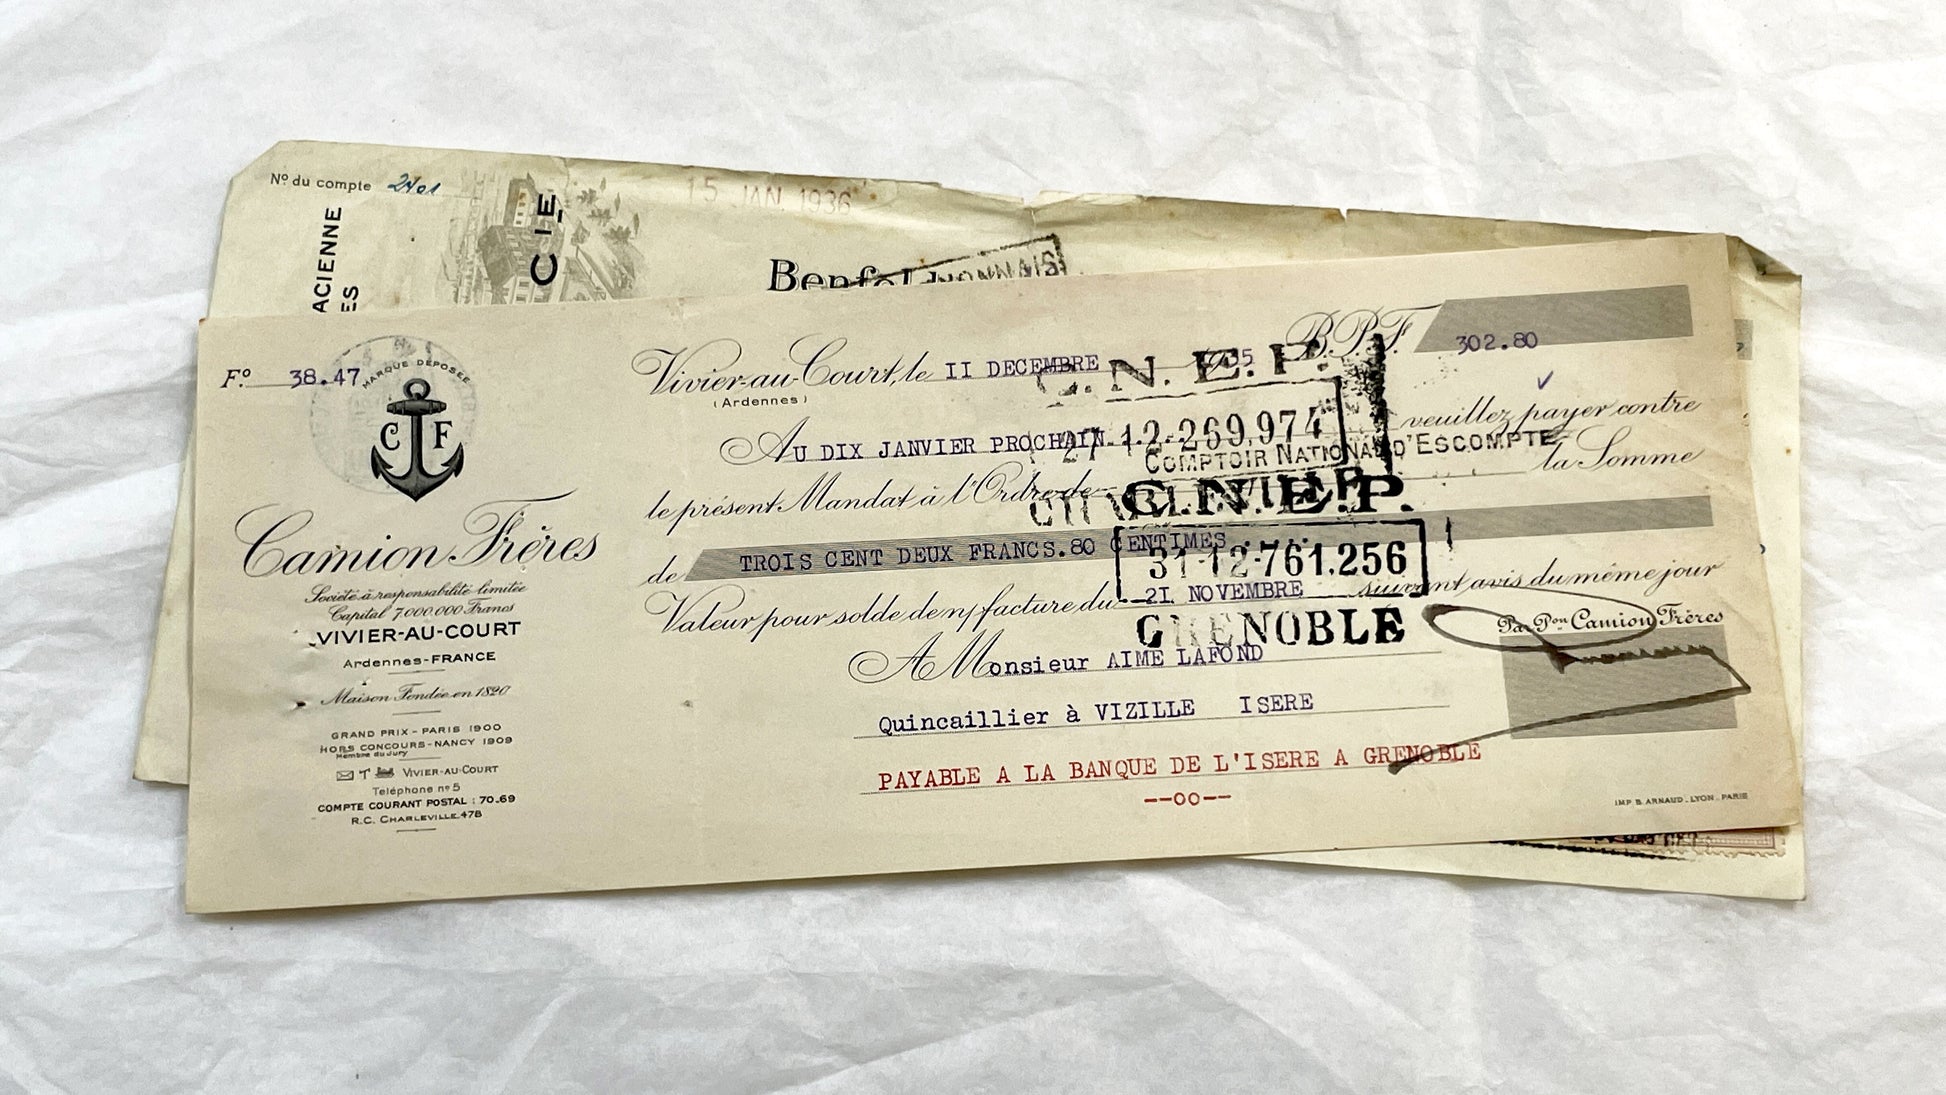 Nº du compte 2401
ACIENNE
ES
CIE
15 JAN. 1936
Benfel
LYONNAIS
Fº 38.47
MARQUE DÉPOSÉE
C F
Camion Frères
Société à responsabilité limitée
Capital 7.000.000 Francs
VIVIER-AU-COURT
Ardennes-FRANCE
Maison Fondée en 1820
GRAND PRIX - PARIS 1900
HORS CONCOURS - NANCY 1909
Membre du Jury
VIVIER-AU-COURT
Téléphone nº 5
COMPTE COURANT POSTAL : 70.69
R.C. CHARLEVILLE.478
Vivier-au-Court, le II DECEMBRE 1935 B.P.F. 302.80
(Ardennes)
Au DIX JANVIER PROCHAIN veuillez payer contre
le présent Mandat à l'Ordre de la Somme
de TROIS CENT DEUX FRANCS.80 CENTIMES
Valeur pour solde de n/ facture du 2I NOVEMBRE suivant avis du même jour
A Monsieur AIME LAFOND
Quincaillier à VIZILLE ISERE
PAYABLE A LA BANQUE DE L'ISERE A GRENOBLE
--oo--
Par Pon Camion Frères
C.N.E.P.
27-12-269.974
COMPTOIR NATIONAL D'ESCOMPTE
C.N.E.P.
31-12-761.256
GRENOBLE
IMP. B. ARNAUD. LYON-PARIS